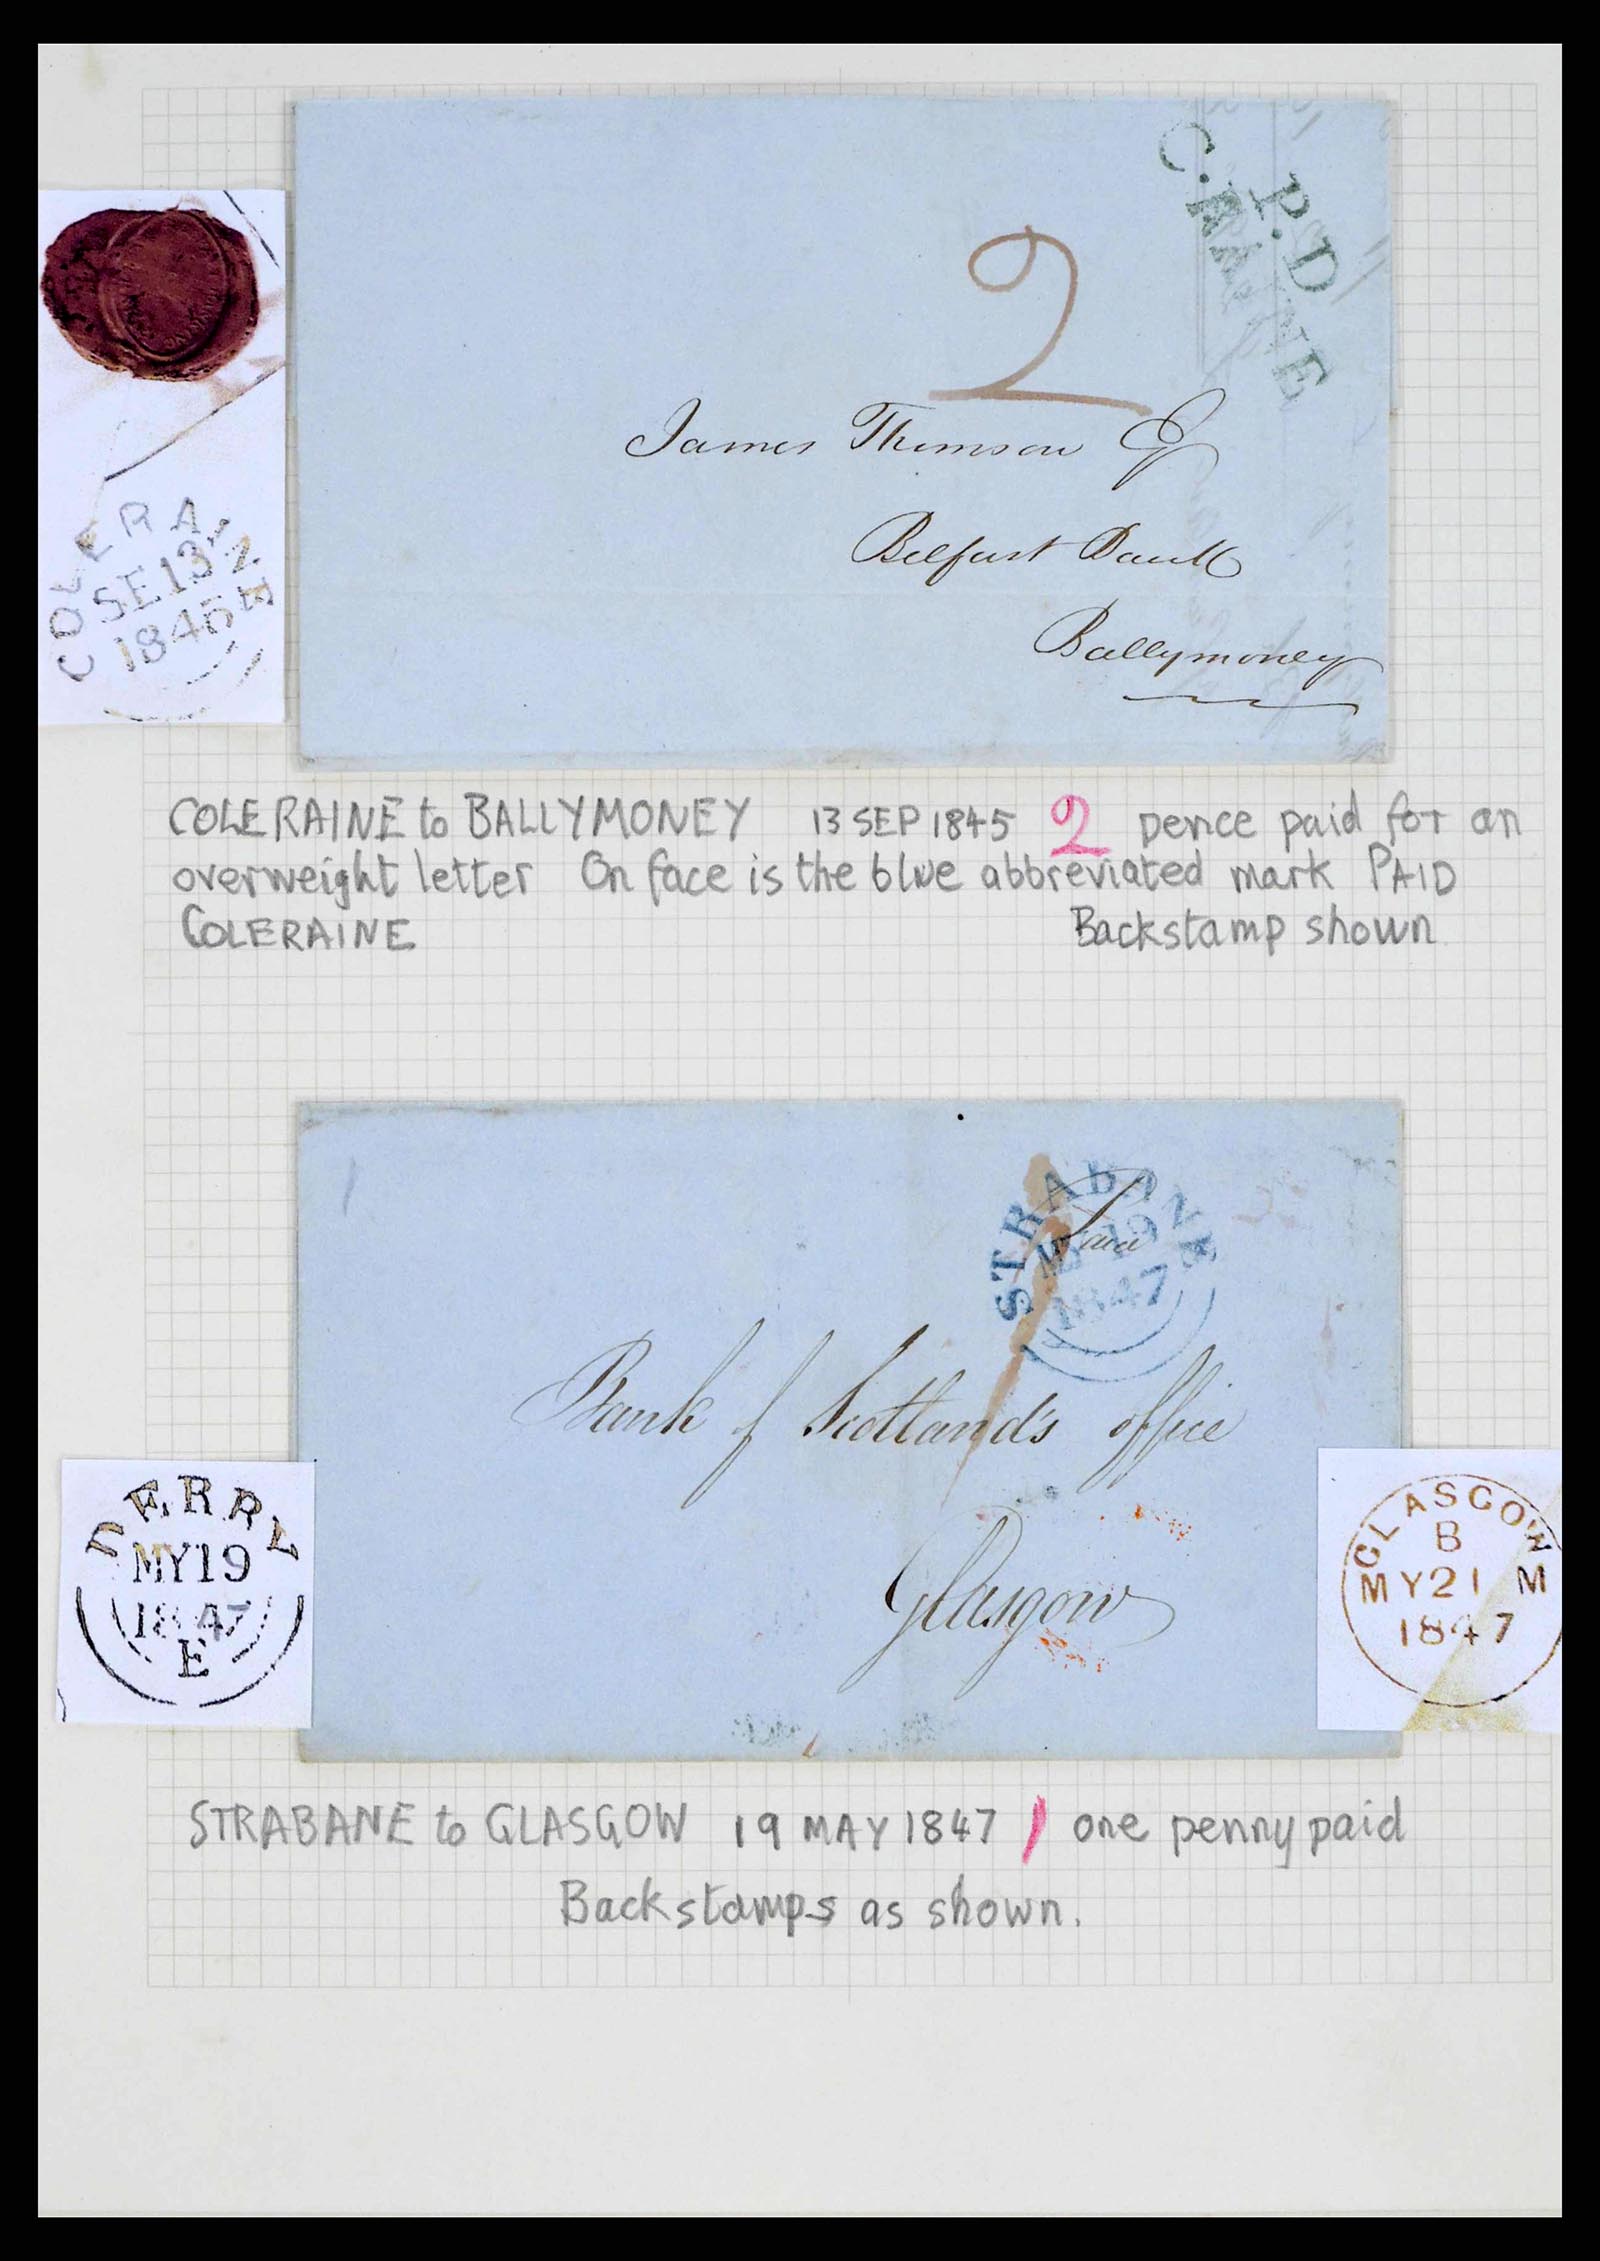 P.D
C.RAINE
2
James Thomson Esq
Belfast Bank
Ballymoney
COLERAINE
SE 13
1845
COLERAINE to BALLYMONEY 13 SEP 1845 2 pence paid for an
overweight letter On face is the blue abbreviated mark PAID
COLERAINE Backstamp shown
STRABANE
MY 19
1847
Paid
Bank of Scotland's office
Glasgow
DERRY
MY 19
1847
E
GLASGOW
B
MY 21 M
1847
STRABANE to GLASGOW 19 MAY 1847 1 one penny paid
Backstamps as shown.